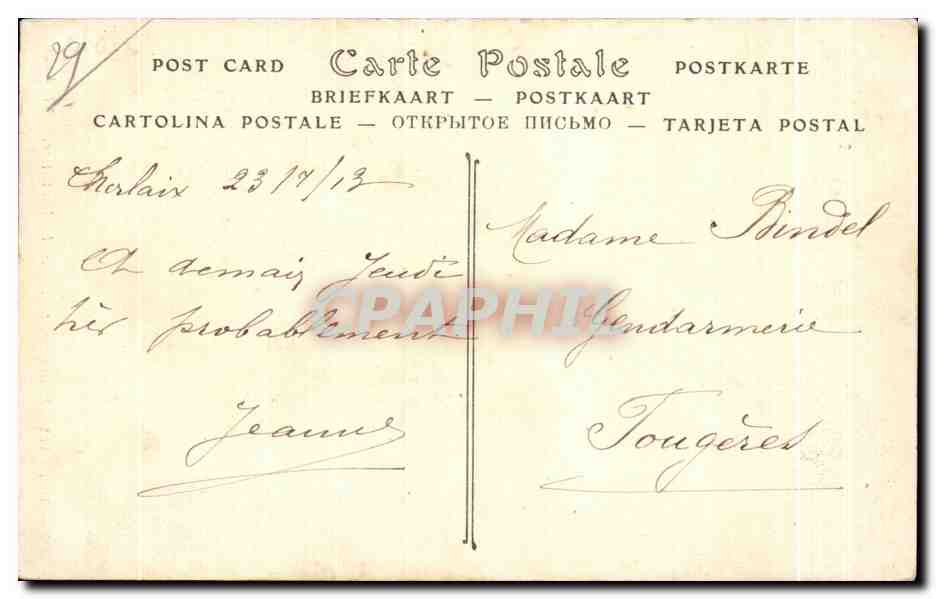 29
POST CARD Carte Postale POSTKARTE
BRIEFKAART — POSTKAART
CARTOLINA POSTALE — ОТКРЫТОЕ ПИСЬМО — TARJETA POSTAL
Morlaix 23/7/13
A demain jeudi
très probablement
Jeanne
Madame Bindel
Gendarmerie
Fougères
CPAPHIL